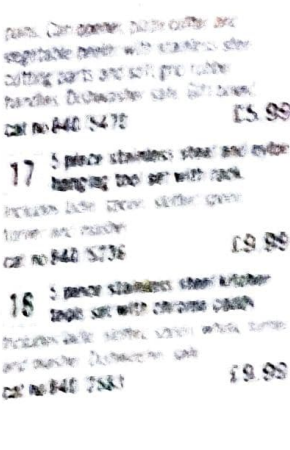 parts. Can opener, pizza cutter and
vegetable peeler with stainless steel
cutting parts and soft grip rubber
handles. Dishwasher safe. Gift boxed.
cat no 840 5470 £5.99
17 5 piece stainless steel and nylon
hanging tool set with rack
Includes ladle, spoon, slotted
turner and masher
cat no 840 5736 £9.99
18 5 piece stainless steel kitchen
tools set with
Includes ladle, slotted turner
and masher. Dishwasher safe
cat no 840 £9.99